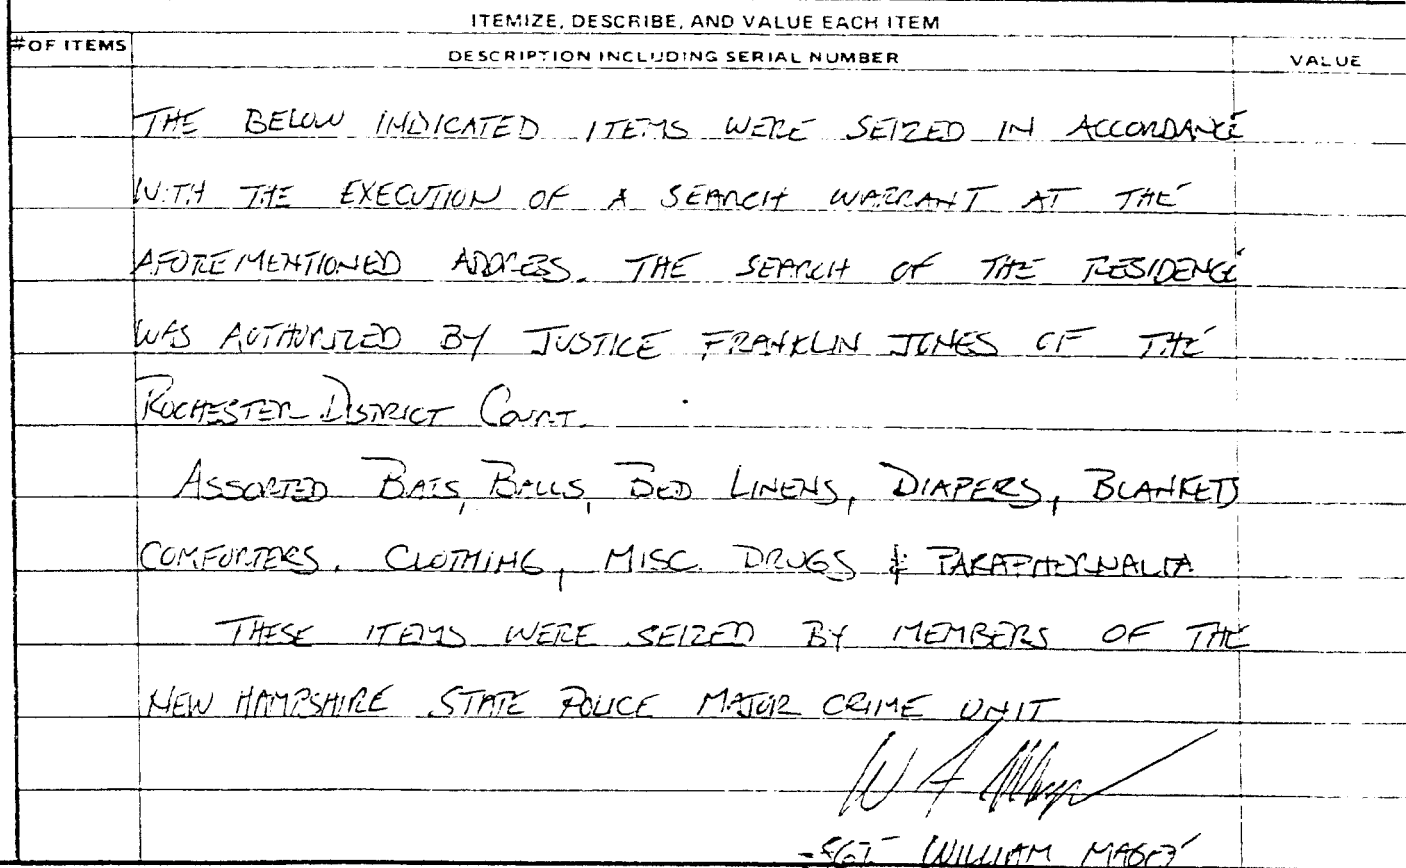 ITEMIZE, DESCRIBE, AND VALUE EACH ITEM
#OF ITEMS
DESCRIPTION INCLUDING SERIAL NUMBER
VALUE
THE BELOW INDICATED ITEMS WERE SEIZED IN ACCORDANCE
WITH THE EXECUTION OF A SEARCH WARRANT AT THE
AFOREMENTIONED ADDRESS. THE SEARCH OF THE RESIDENCE
WAS AUTHORIZED BY JUSTICE FRANKLIN JONES OF THE
ROCHESTER DISTRICT COURT.
ASSORTED BATS, BALLS, BED LINENS, DIAPERS, BLANKETS
COMFORTERS, CLOTHING, MISC. DRUGS & PARAPHERNALIA
THESE ITEMS WERE SEIZED BY MEMBERS OF THE
NEW HAMPSHIRE STATE POLICE MAJOR CRIME UNIT
-SGT WILLIAM